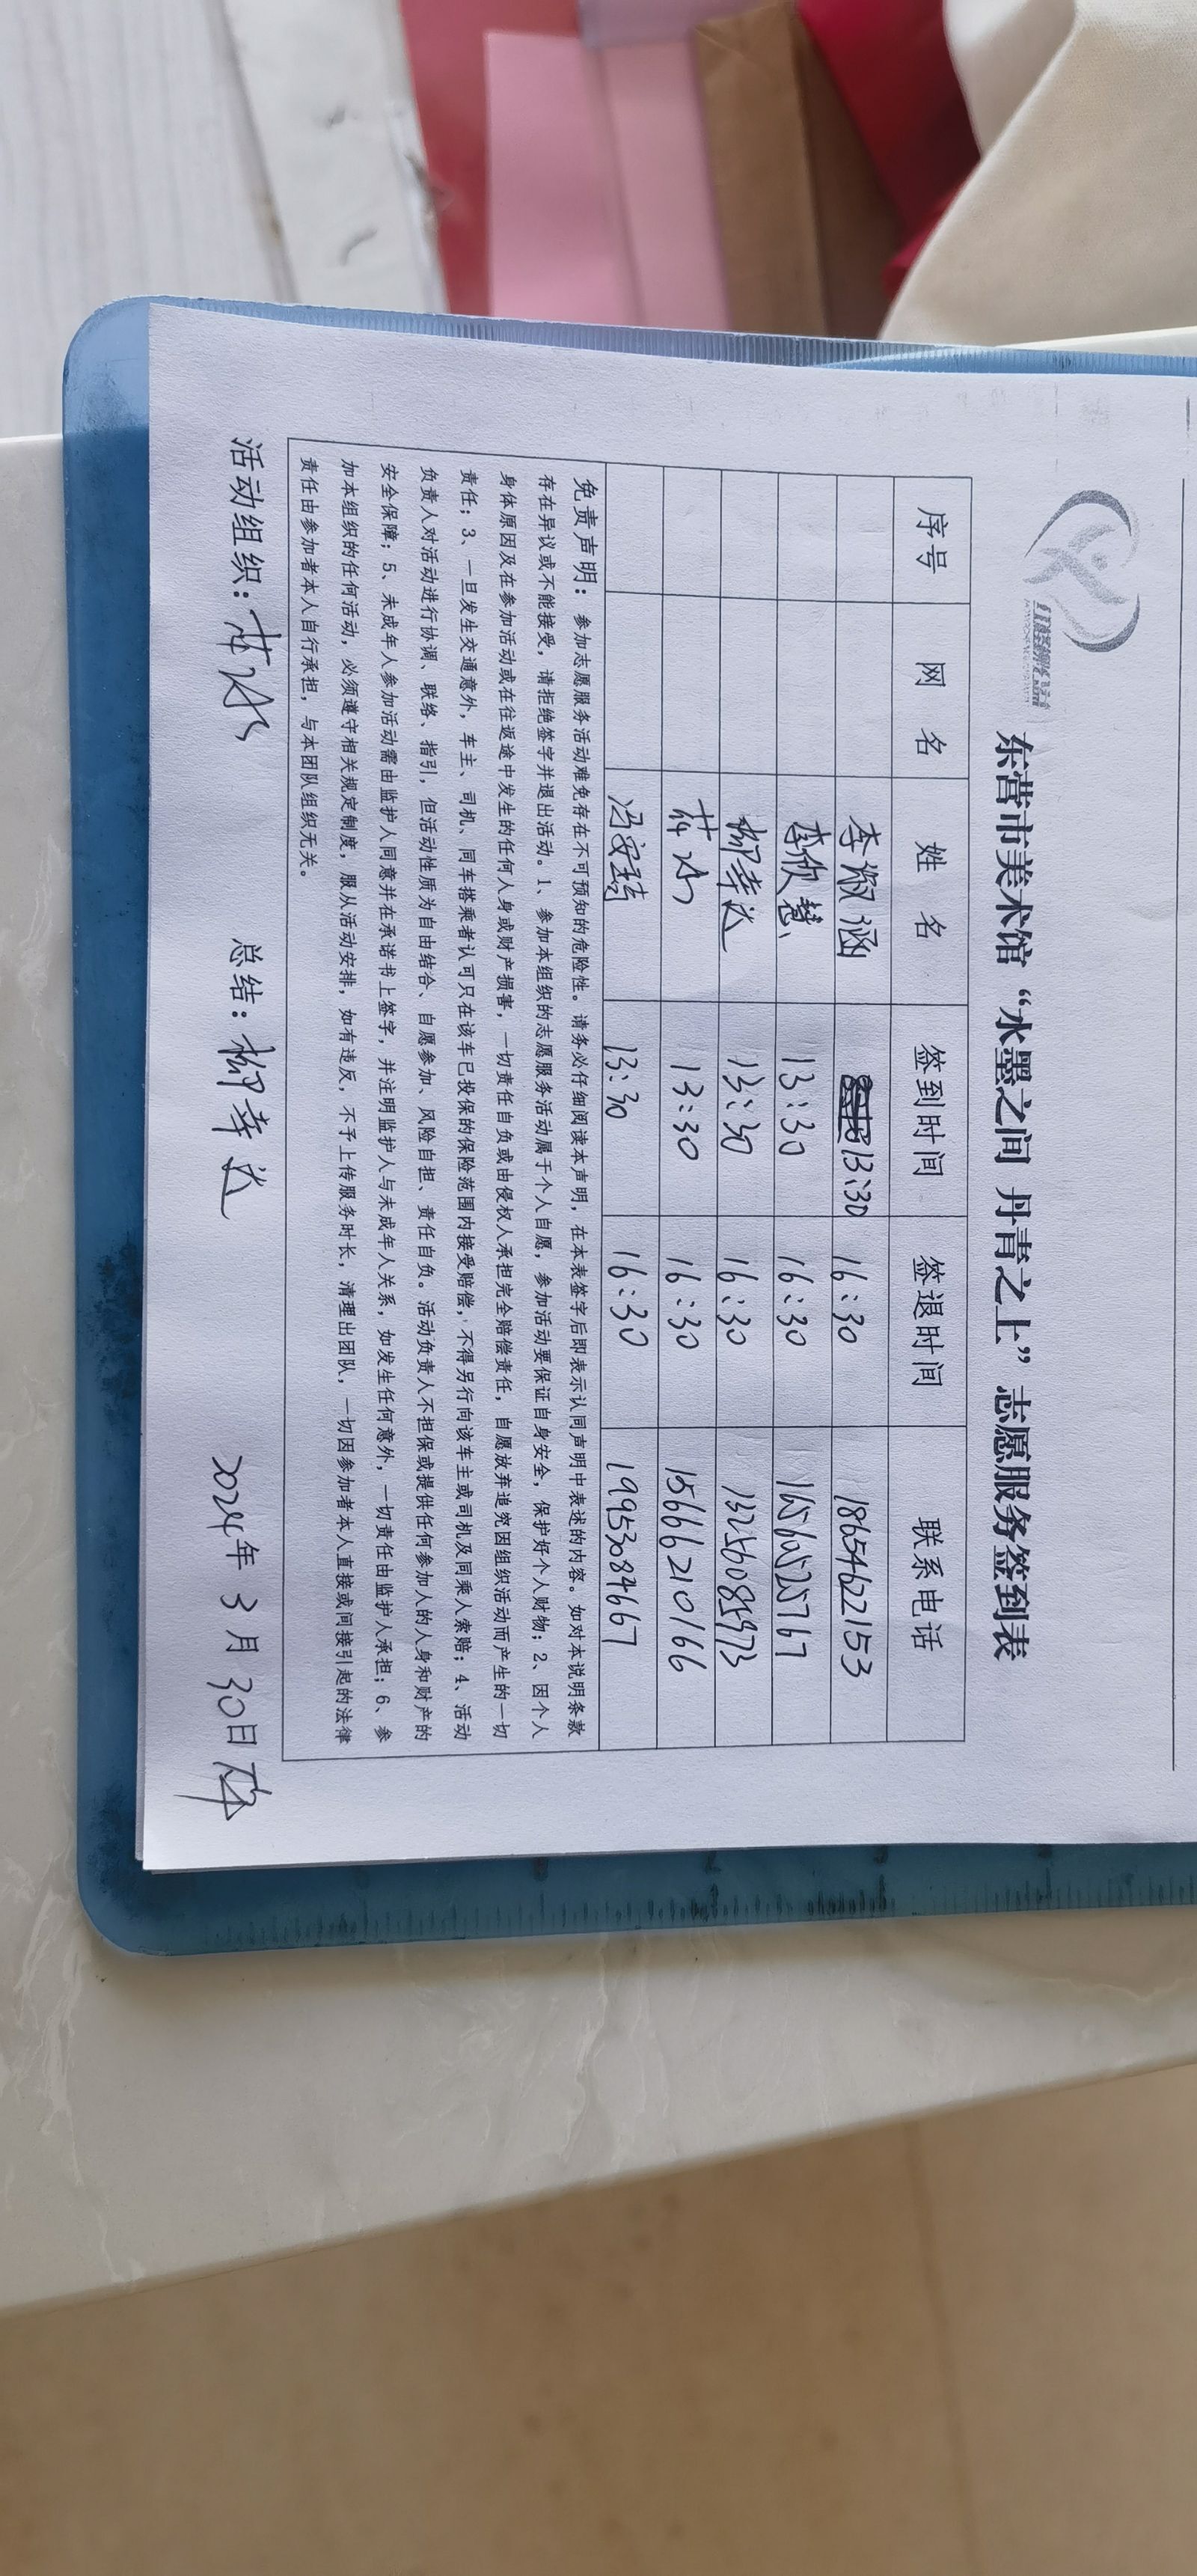 红丝带公益
东营市美术馆“水墨之间 丹青之上”志愿服务签到表
序号 网 名 姓 名 签到时间 签退时间 联系电话
李淑涵 13:30 16:30 18654622153
李欣慧 13:30 16:30 16560525767
柳幸达 13:30 16:30 13256085973
13:30 16:30 15666210166
冯安琦 13:30 16:30 19953084667
免责声明：参加志愿服务活动难免存在不可预知的危险性。请务必仔细阅读本声明，在本表签字后即表示认同声明中表述的内容。如对本说明条款
存在异议或不能接受，请拒绝签字并退出活动。1、参加本组织的志愿服务活动属于个人自愿，参加活动要保证自身安全，保护好个人财物；2、因个人
身体原因及在参加活动或在往返途中发生的任何人身或财产损害，一切责任自负或由侵权人承担完全赔偿责任，自愿放弃追究因组织活动而产生的一切
责任；3、一旦发生交通意外，车主、司机、同车搭乘者认可只在该车已投保的保险范围内接受赔偿，不得另行向该车主或司机及同乘人索赔；4、活动
负责人对活动进行协调、联络、指引，但活动性质为自由结合、自愿参加、风险自担、责任自负。活动负责人不担保或提供任何参加人的人身和财产的
安全保障；5、未成年人参加活动需由监护人同意并在承诺书上签字，并注明监护人与未成年人关系，如发生任何意外，一切责任由监护人承担；6、参
加本组织的任何活动，必须遵守相关规定制度，服从活动安排，如有违反，不予上传服务时长，清理出团队，一切因参加者本人直接或间接引起的法律
责任由参加者本人自行承担，与本团队组织无关。
活动组织： 总结：柳幸达 2024年 3月 30日